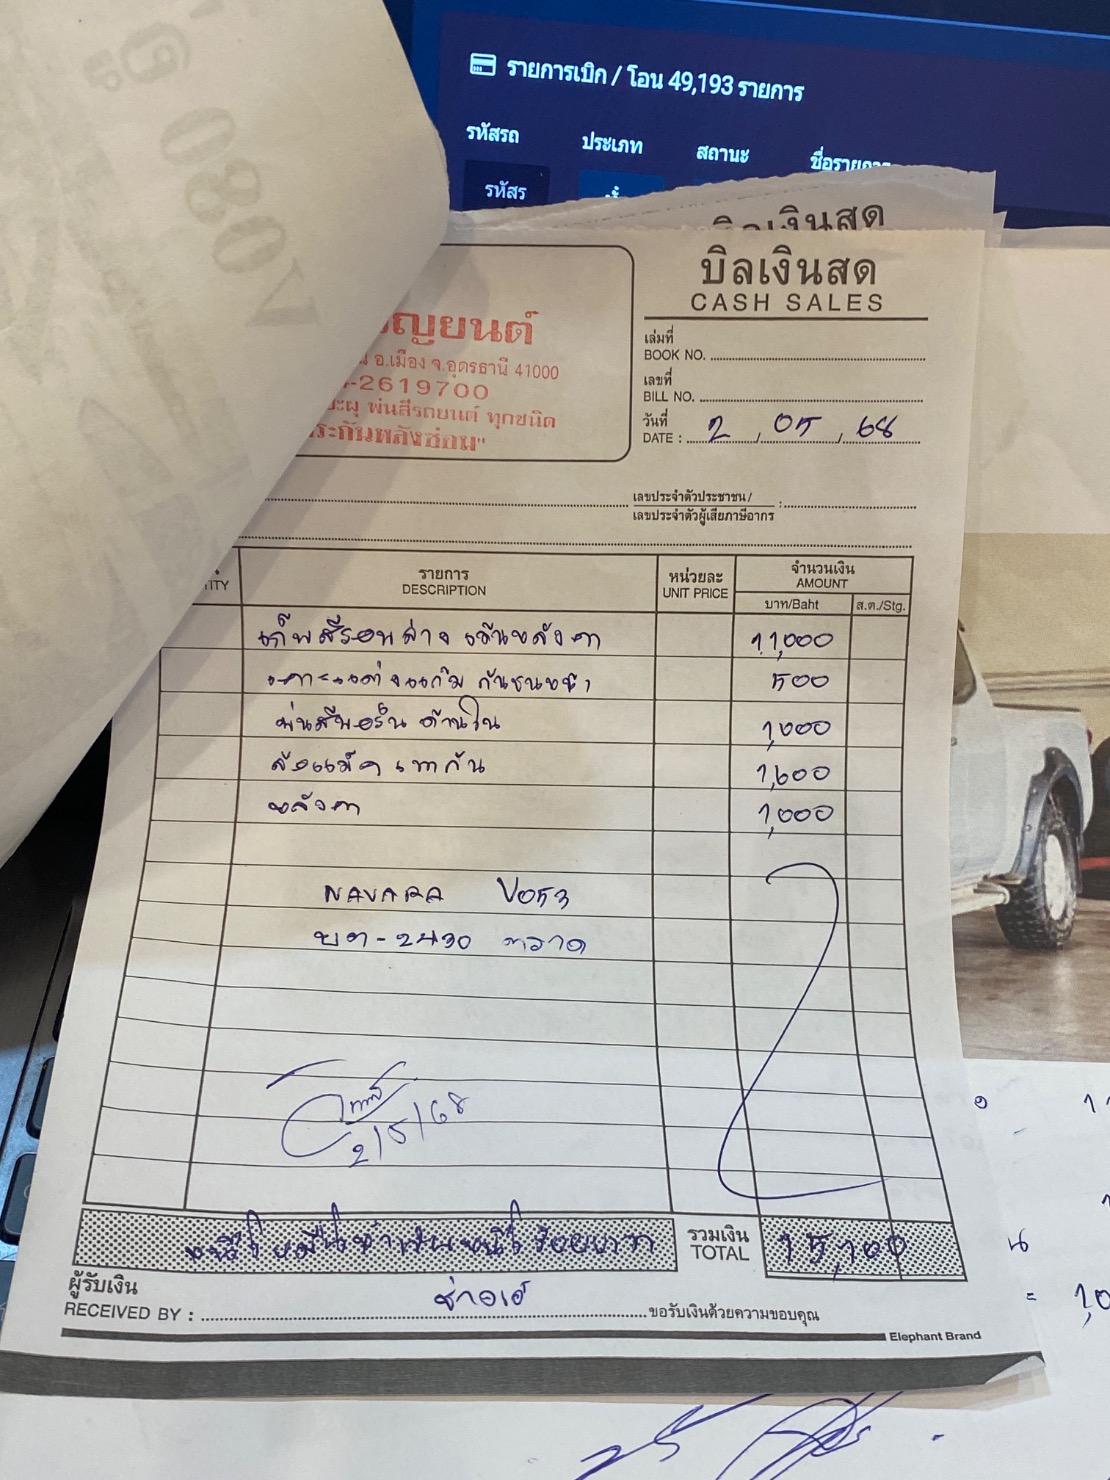 รายการเบิก / โอน 49,193 รายการ
รหัสรถ ประเภท สถานะ
รหัสร
บิลเงินสด
บิลเงินสด
CASH SALES
ญยนต์
อ.เมือง จ.อุดรธานี 41000
-2619700
ะผุ พ่นสีรถยนต์ ทุกชนิด
ระกันหลังซ่อม"
เล่มที่
BOOK NO.
เลขที่
BILL NO.
วันที่
DATE : 2 , 05 , 68
เลขประจำตัวประชาชน /
เลขประจำตัวผู้เสียภาษีอากร :
รายการ หน่วยละ จำนวนเงิน
DESCRIPTION UNIT PRICE AMOUNT
บาท/Baht ส.ต./Stg.
เก็บสีรอบล่าง เว้นหลังคา 11,000
กันชนหน้า 500
พ่นสีพื้น ด้านใน 1,000
1,600
หลังคา 1,000
NAVARA V053
ผต-2430 ตราด
2/5/68
หนึ่งหมื่นห้าพันหนึ่งร้อยบาท
รวมเงิน
TOTAL 15,100
ผู้รับเงิน
RECEIVED BY : ช่างเอ๋ ขอรับเงินด้วยความขอบคุณ
Elephant Brand